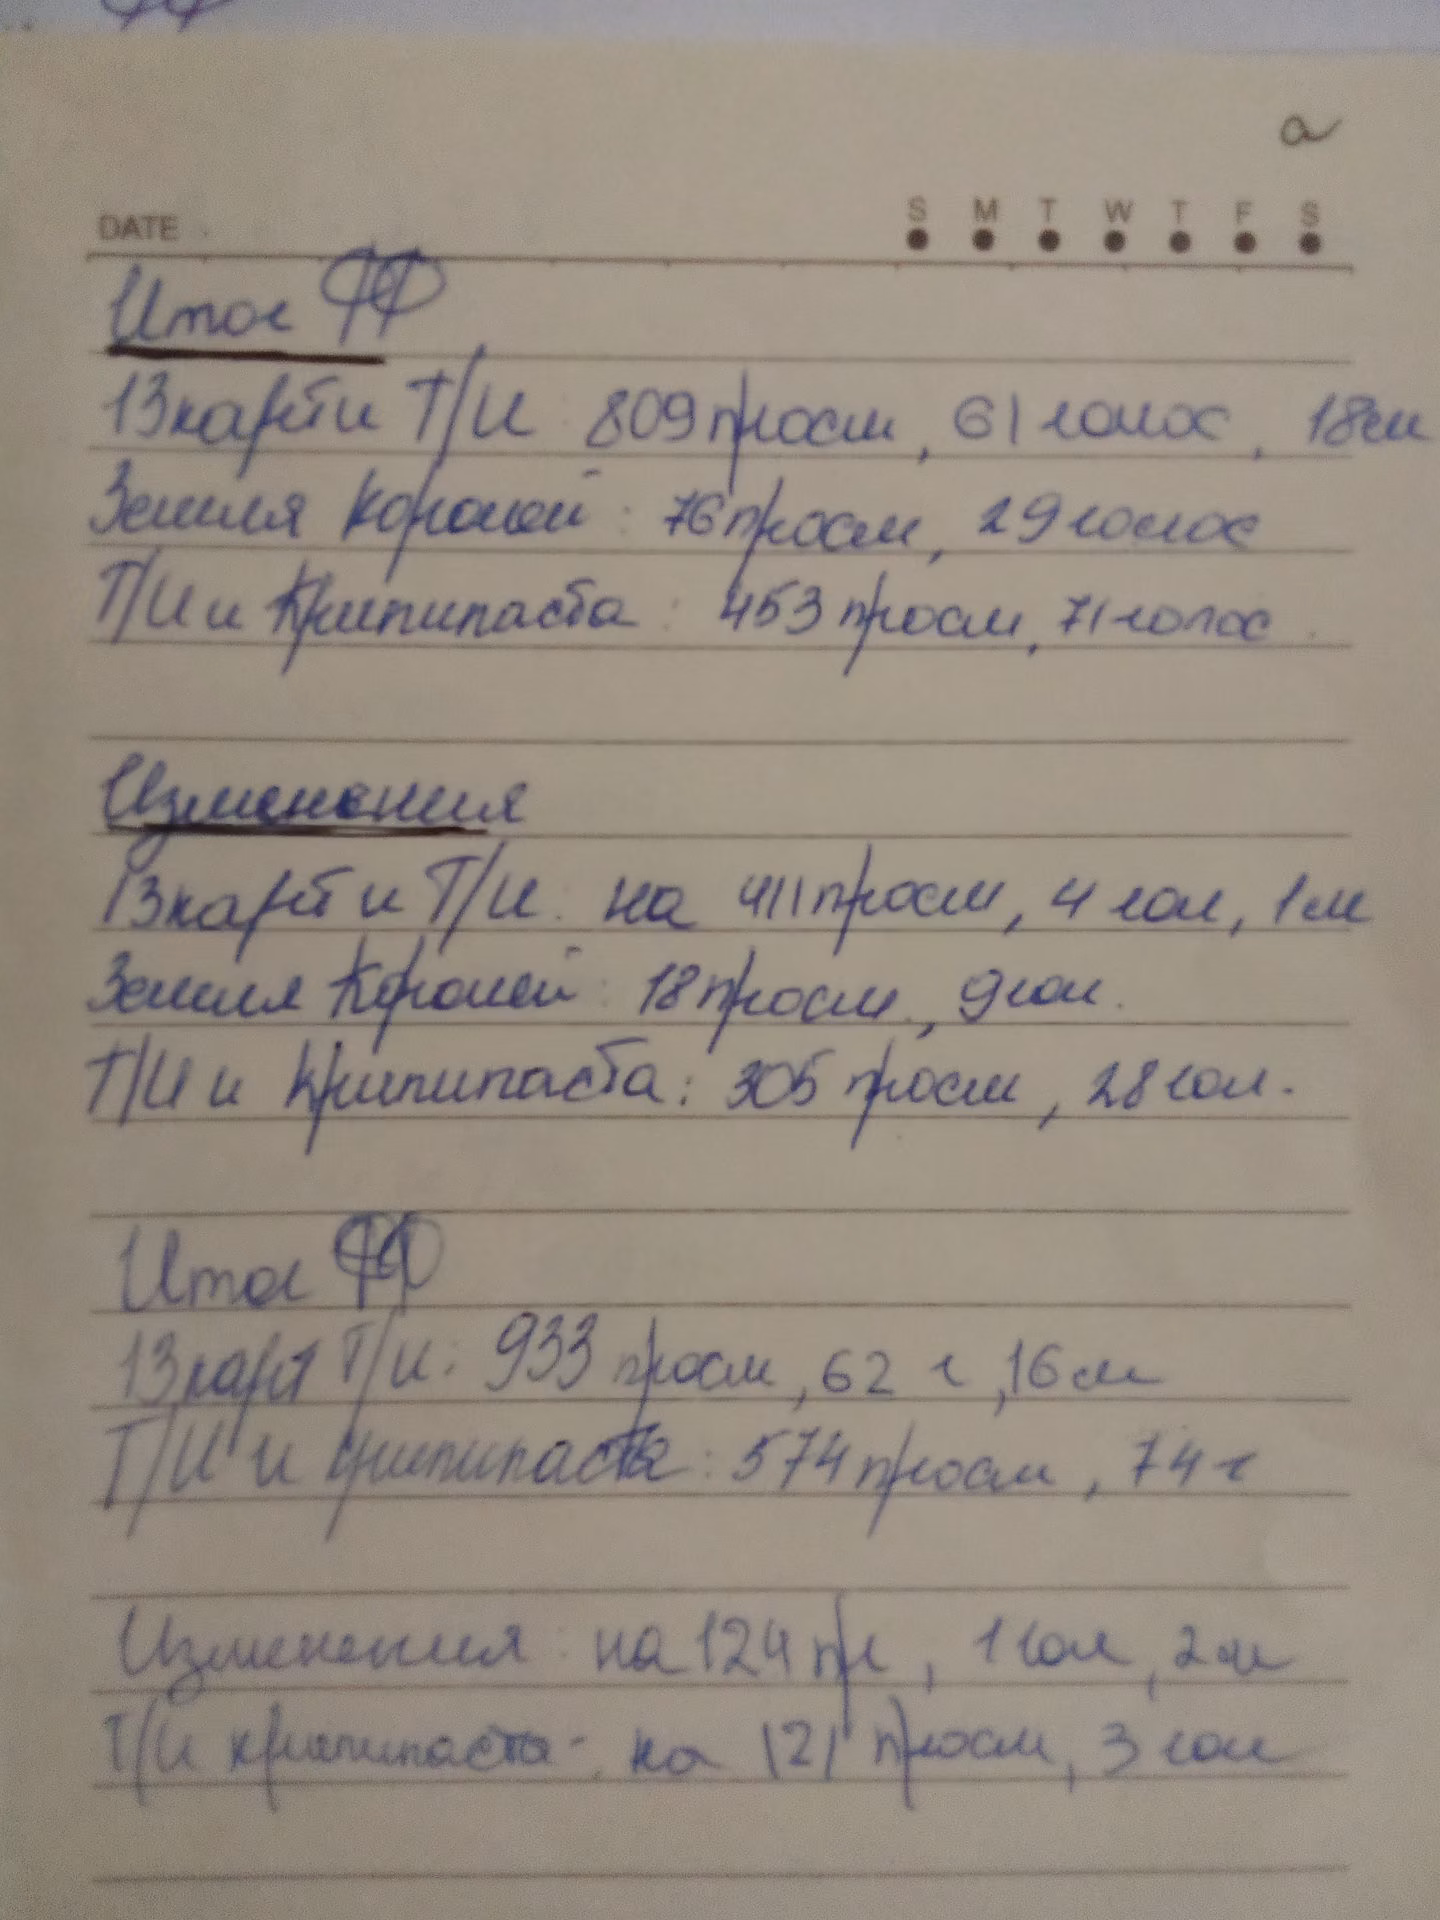 а
DATE S M T W T F S
Итог ФФ
13 карт и Т/И: 809 просм, 61 голос, 18 см
Земля Королей: 76 просм, 29 голос
Т/И и Крипипаста: 453 просм, 71 голос
Изменения
13 карт и Т/И: на 411 просм, 4 гол, 1 м
Земля Королей: 18 просм, 9 гол.
Т/И и Крипипаста: 305 просм, 28 гол.
Итог ФФ
13 карт Т/И: 933 просм, 62 г, 16 см
Т/И и крипипаста: 574 просм, 74 г
Изменения: на 124 пр, 1 гол, 2 м
Т/И крипипаста: на 121 просм, 3 гол